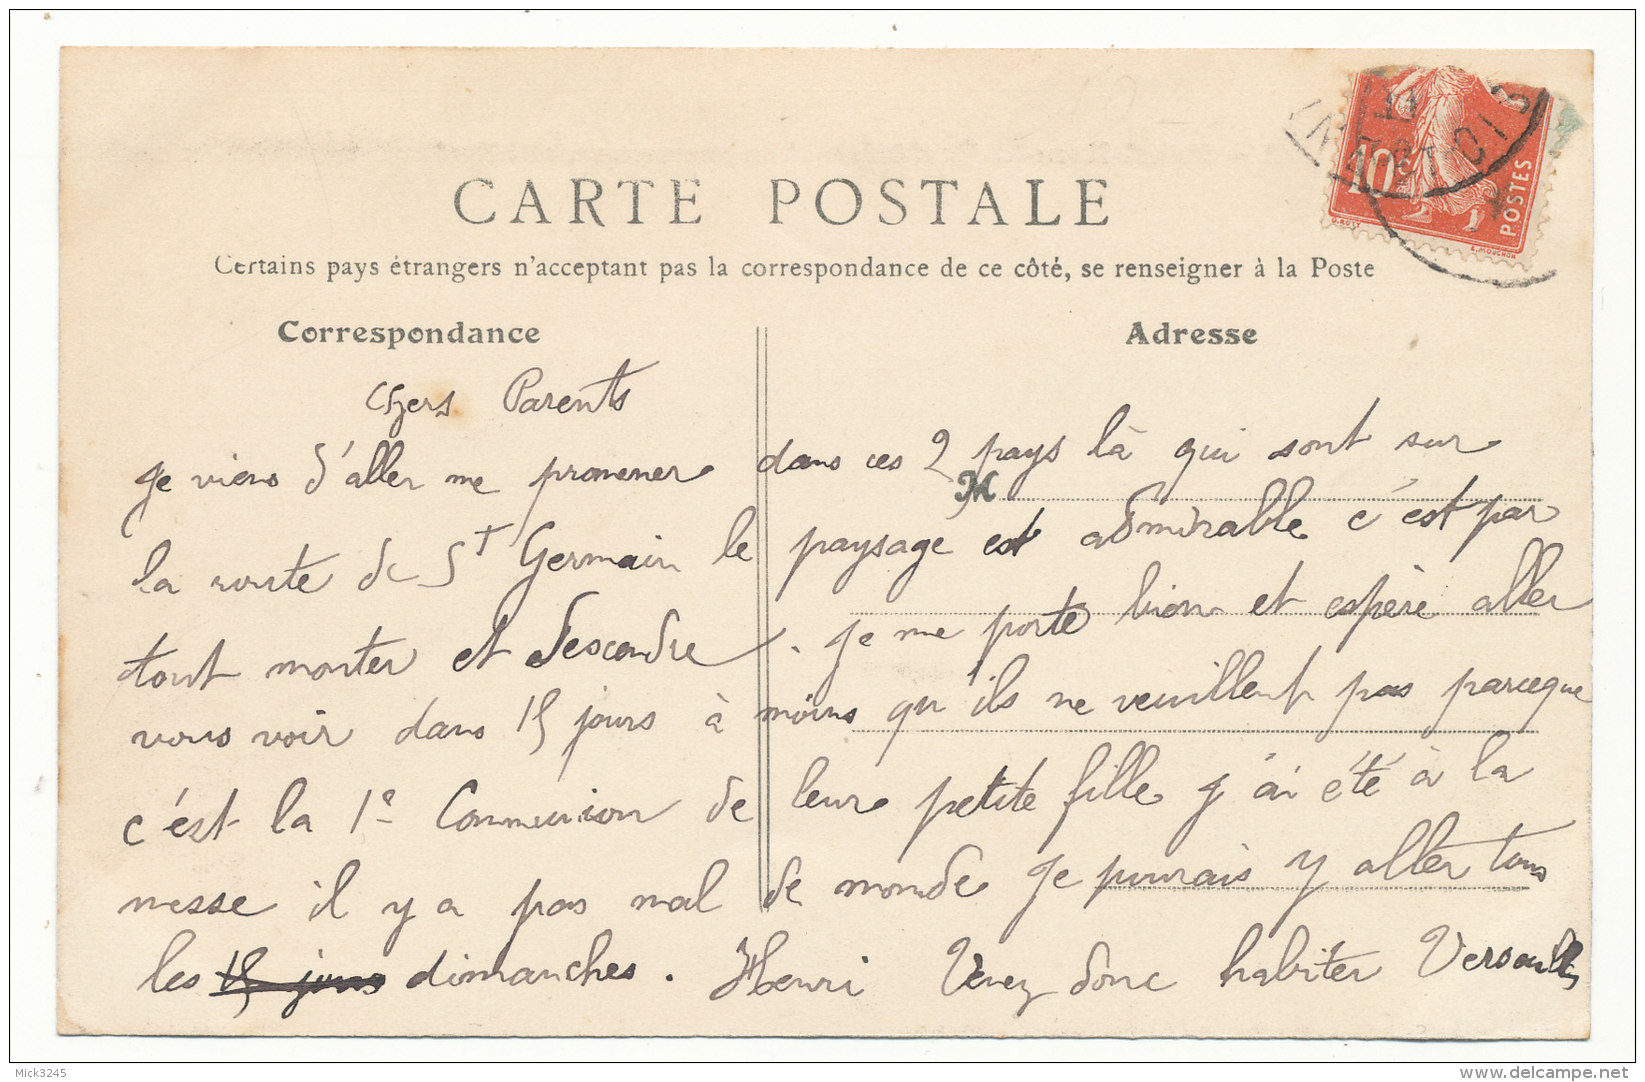 CARTE POSTALE
Certains pays étrangers n'acceptant pas la correspondance de ce côté, se renseigner à la Poste
Correspondance Adresse
10 POSTES
O. ROTY E. MOUCHON
M
Chers Parents
Je viens d'aller me promener dans ces 2 pays là qui sont sur
la route de St Germain le paysage est admirable c'est par
tout monter et descendre. Je me porte bien et espère aller
vous voir dans 15 jours à moins qu'ils ne veuillent pas parceque
c'est la 1e Communion de leur petite fille j'ai été à la
messe il y a pas mal de monde je pourais y aller tous
les 15 jours dimanches. Henri Venez donc habiter Versailles
Mick3245
www.delcampe.net